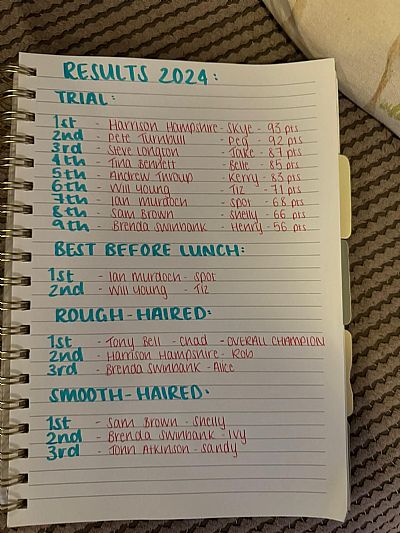 RESULTS 2024:
TRIAL:
1st - Harrison Hampshire - Skye - 93 pts
2nd - Pete Turnbull - Peg - 92 pts
3rd - Steve Longton - Jake - 87 pts
4th - Tina Bennett - Belle - 85 pts
5th - Andrew Tiroup - Kerry - 83 pts
6th - Will Young - Tiz - 71 pts
7th - Ian Murdoch - Spot - 68 pts
8th - Sam Brown - Shelly - 66 pts
9th - Brenda Swinbank - Henry - 56 pts
BEST BEFORE LUNCH:
1st - Ian Murdoch - Spot
2nd - Will Young - Tiz
ROUGH-HAIRED:
1st - Tony Bell - Chad - OVERALL CHAMPION
2nd - Harrison Hampshire - Rob
3rd - Brenda Swinbank - Alice
SMOOTH-HAIRED:
1st - Sam Brown - Shelly
2nd - Brenda Swinbank - Ivy
3rd - John Atkinson - Sandy